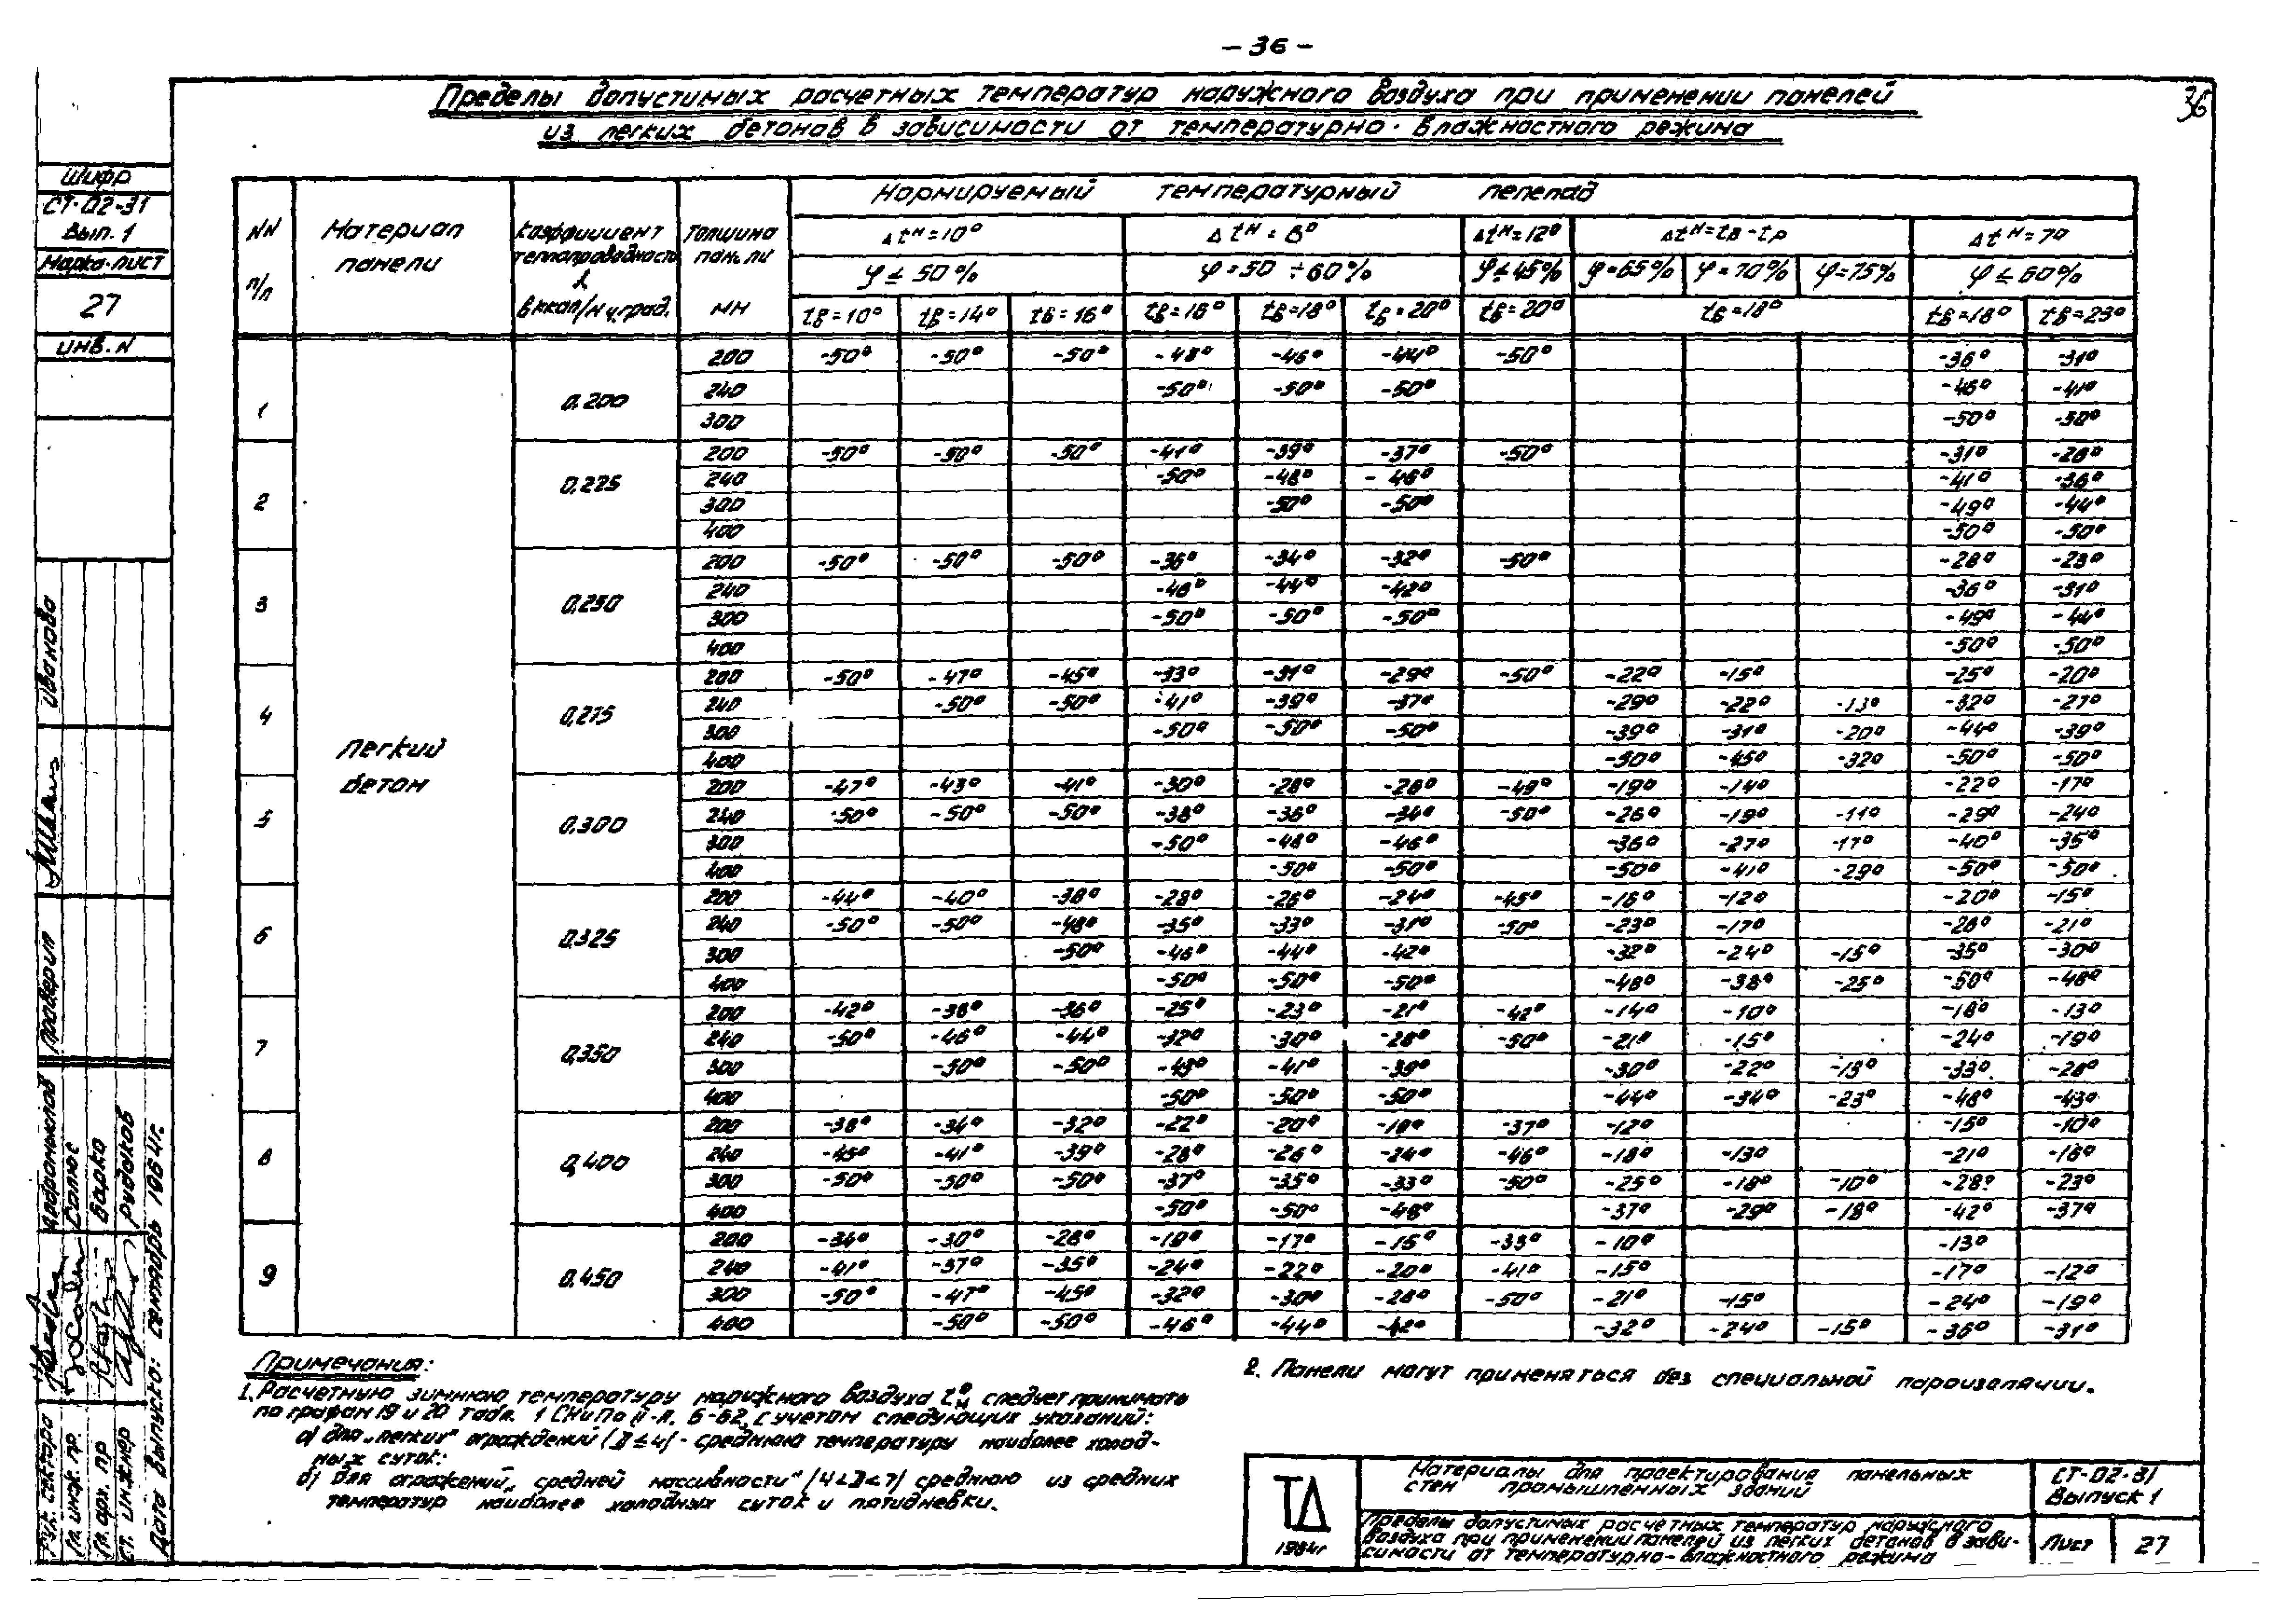 - 36 -
36
Пределы допустимых расчетных температур наружного воздуха при применении панелей
из легких бетонов в зависимости от температурно-влажностного режима
Шифр
СТ-02-31
Вып. 1
Марка-лист
27
инв. N
NN п/п
Материал панели
Коэффициент теплопроводность λ в ккал/м ч.град.
Толщина пан.ли мм
Нормируемый температурный пепепад
Δtᴴ=10° Δtᴴ=8° Δtᴴ=12° Δtᴴ=tв-tр Δtᴴ=7°
φ≤50% φ=50÷60% φ≤45% φ=65% φ=70% φ=75% φ≤60%
tв=10° tв=14° tв=16° tв=16° tв=18° tв=20° tв=20° tв=18° tв=18° tв=23°
Легкий бетон
1 0.200
200 -50° -50° -50° -48° -46° -44° -50° -36° -31°
240 -50° -50° -50° -46° -41°
300 -50° -50°
2 0.225
200 -50° -50° -50° -41° -39° -37° -50° -31° -26°
240 -50° -48° -46° -41° -36°
300 -50° -50° -49° -44°
400 -50° -50°
3 0.250
200 -50° -50° -50° -36° -34° -32° -50° -28° -23°
240 -46° -44° -42° -36° -31°
300 -50° -50° -50° -49° -44°
400 -50° -50°
4 0.275
200 -50° -47° -45° -33° -31° -29° -50° -22° -15° -25° -20°
240 -50° -50° -41° -39° -37° -29° -22° -13° -32° -27°
300 -50° -50° -50° -39° -31° -20° -44° -39°
400 -50° -45° -32° -50° -50°
5 0.300
200 -47° -43° -41° -30° -28° -26° -49° -19° -14° -22° -17°
240 -50° -50° -50° -38° -36° -34° -50° -26° -19° -11° -29° -24°
300 -50° -48° -46° -36° -27° -17° -40° -35°
400 -50° -50° -50° -41° -29° -50° -50°
6 0.325
200 -44° -40° -38° -28° -26° -24° -45° -16° -12° -20° -15°
240 -50° -50° -48° -35° -33° -31° -50° -23° -17° -26° -21°
300 -50° -46° -44° -42° -32° -24° -15° -35° -30°
400 -50° -50° -50° -48° -38° -25° -50° -48°
7 0.350
200 -42° -38° -36° -25° -23° -21° -42° -14° -10° -18° -13°
240 -50° -46° -44° -32° -30° -28° -50° -21° -15° -24° -19°
300 -50° -50° -43° -41° -39° -30° -22° -13° -33° -28°
400 -50° -50° -50° -44° -34° -23° -48° -43°
8 0.400
200 -38° -34° -32° -22° -20° -18° -37° -12° -15° -10°
240 -45° -41° -39° -28° -26° -24° -46° -18° -13° -21° -16°
300 -50° -50° -50° -37° -35° -33° -50° -25° -18° -10° -28° -23°
400 -50° -50° -48° -37° -29° -18° -42° -37°
9 0.450
200 -34° -30° -28° -19° -17° -15° -33° -10° -13°
240 -41° -37° -35° -24° -22° -20° -41° -15° -17° -12°
300 -50° -47° -45° -32° -30° -28° -50° -21° -15° -24° -19°
400 -50° -50° -46° -44° -42° -32° -24° -15° -36° -31°
Примечания:
1. Расчетную зимнюю температуру наружного воздуха следует принимать
по графам 19 и 20 табл. 1 СНиП II-А. 6-62, с учетом следующих указаний:
а) для „легких" ограждений (Д≤4) - среднюю температуру наиболее холод-
ных суток;
б) для огражений „средней массивности" (4<Д≤7) среднюю из средних
температур наиболее холодных суток и пятидневки.
2. Панели могут применяться без специальной пароизоляции.
Иванова
Проверил
Рук. сектора
Гл. инж. пр.
Гл. арх. пр
Ст. инжнер
Барко
Рудаков
Дата выпуска: сентябрь 1964г.
ТД
1964г
Материалы для проектирования панельных
стен промышленных зданий
СТ-02-31
Выпуск 1
Пределы допустимых расчетных температур наружного
воздуха при применении панелей из легких бетонов в зави-
симости от температурно-влажностного режима
Лист 27